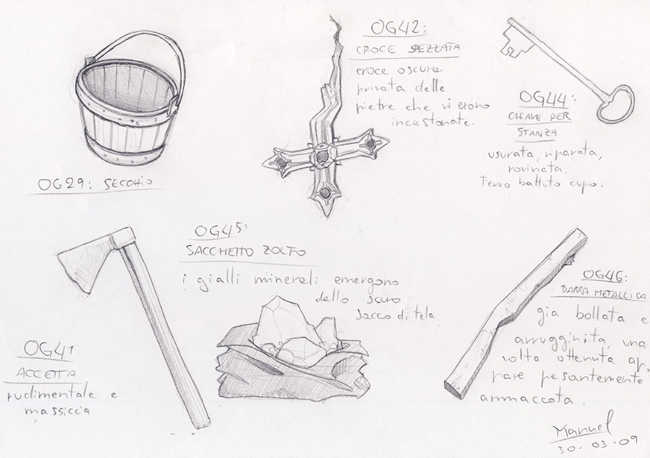 OG29: SECCHIO
OG42:
CROCE SPEZZATA
croce oscura
privata delle
pietre che vi erano
incastonate.
OG44:
CHIAVE PER
STANZA
usurata, riparata,
rovinata.
Ferro battuto cupo.
OG41
ACCETTA
rudimentale e
massiccia
OG45
SACCHETTO ZOLFO
i gialli minerali emergono
dallo scuro
sacco di tela
OG46:
BARRA METALLICA
gia bollata e
arrugginita, una
volta ottenuta ap
pare pesantemente
ammaccata.
Manuel
30-03-09